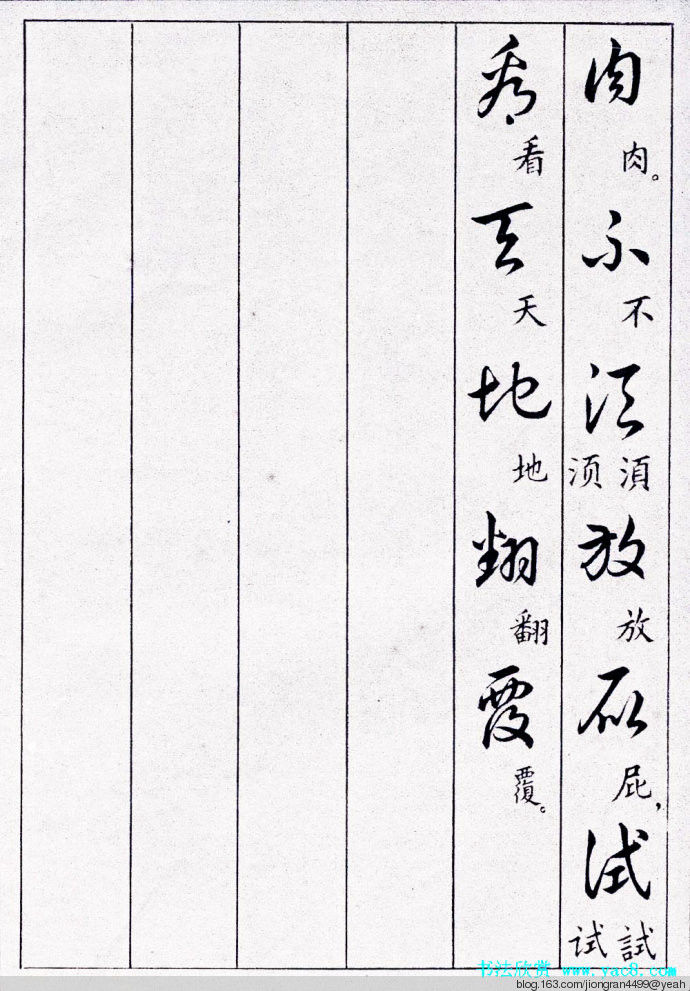 肉肉。不不須須须放放屁屁，試試试
看看天天地地翻翻覆覆。
书法欣赏 www.yac8.com
blog.163.com/jiongran4499@yeah